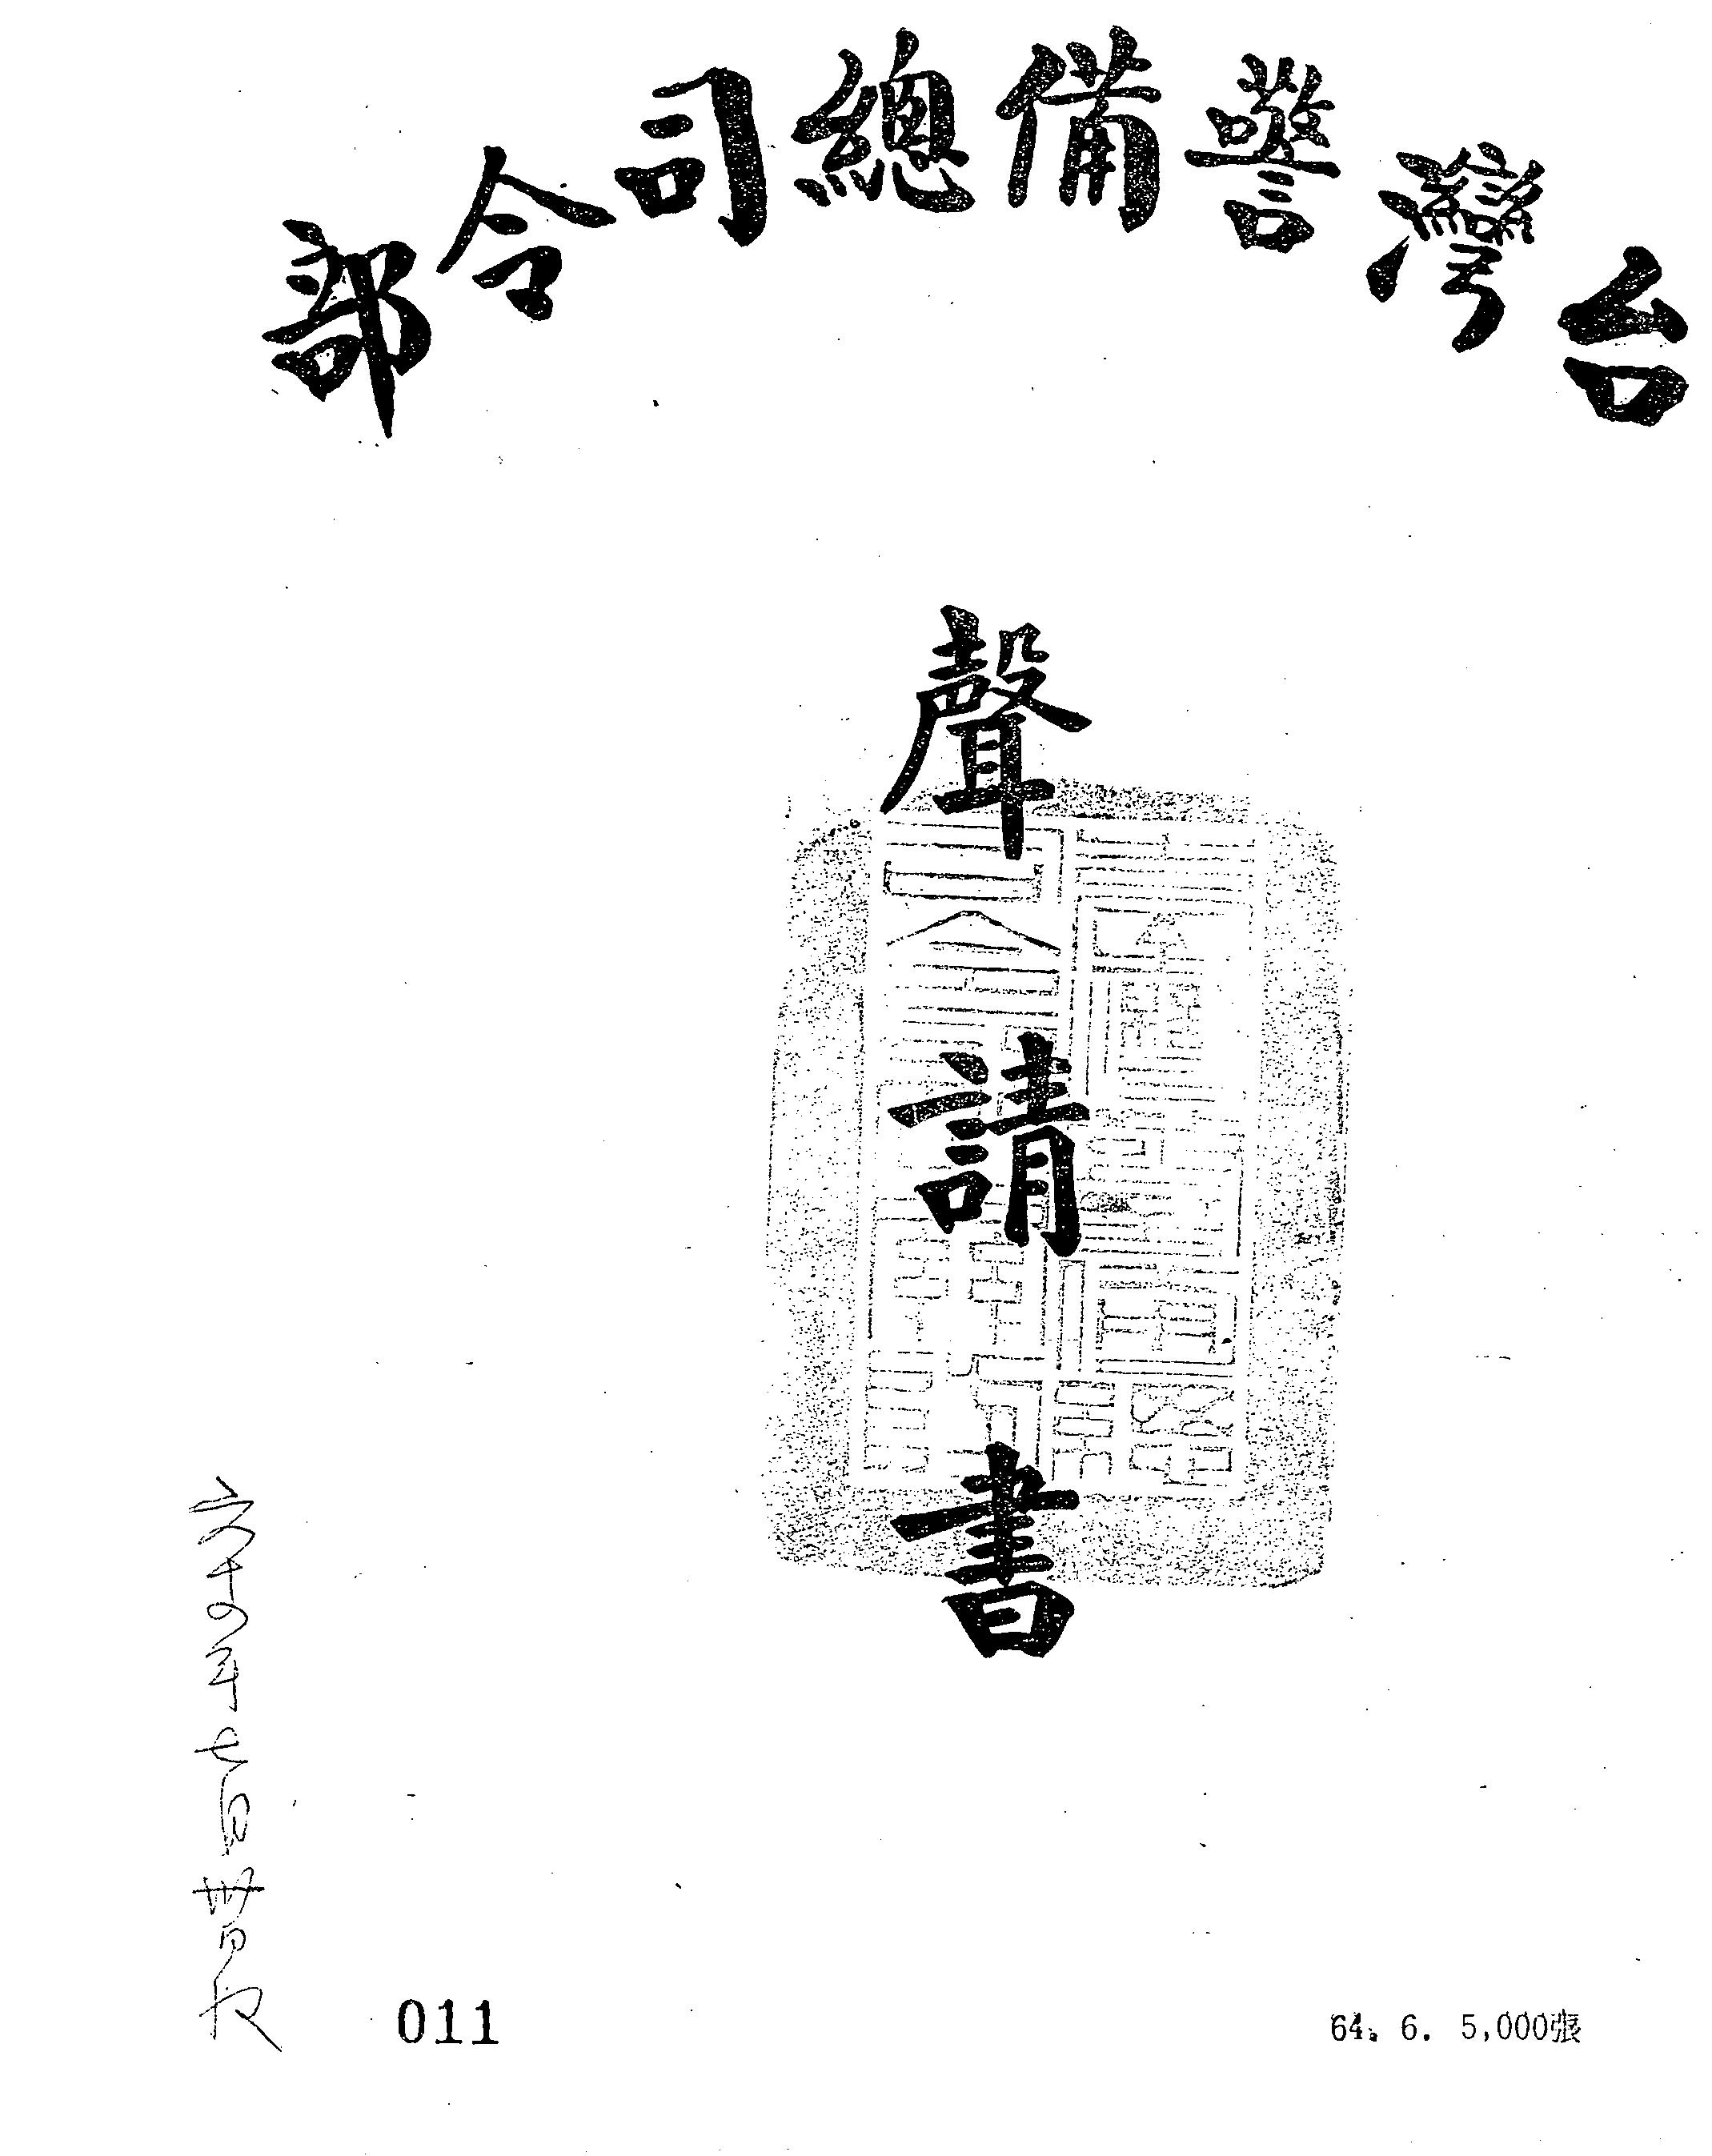 台灣警備總司令部
聲請書
六十四年七月卅日收
011
64. 6. 5,000張